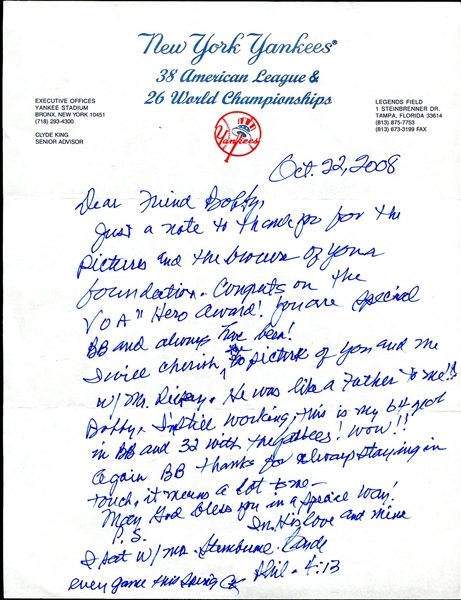 New York Yankees®
38 American League &
26 World Championships
EXECUTIVE OFFICES
YANKEE STADIUM
BRONX, NEW YORK 10451
(718) 293-4300
CLYDE KING
SENIOR ADVISOR
LEGENDS FIELD
1 STEINBRENNER DR.
TAMPA, FLORIDA 33614
(813) 875-7753
(813) 673-3199 FAX
Yankees
Oct. 22, 2008
Dear Friend Bobby,
Just a note to thank you for the
pictures and the of your
foundation. Congrats on the
VOA "Hero Award! You are special
BB and always have been!
I will cherish the picture of you and me
w/ Mr. Rickey. He was like a Father to me!!
Bobby, I'm still working, this is my 64 year
in BB and 32 with the Yankees! Wow!!
Again BB thanks for always staying in
touch, it means a lot to me -
May God bless you in a special way!
In His love and mine
P.S.
I sat w/ Mr.
every game this Spring
Phil - 4:13